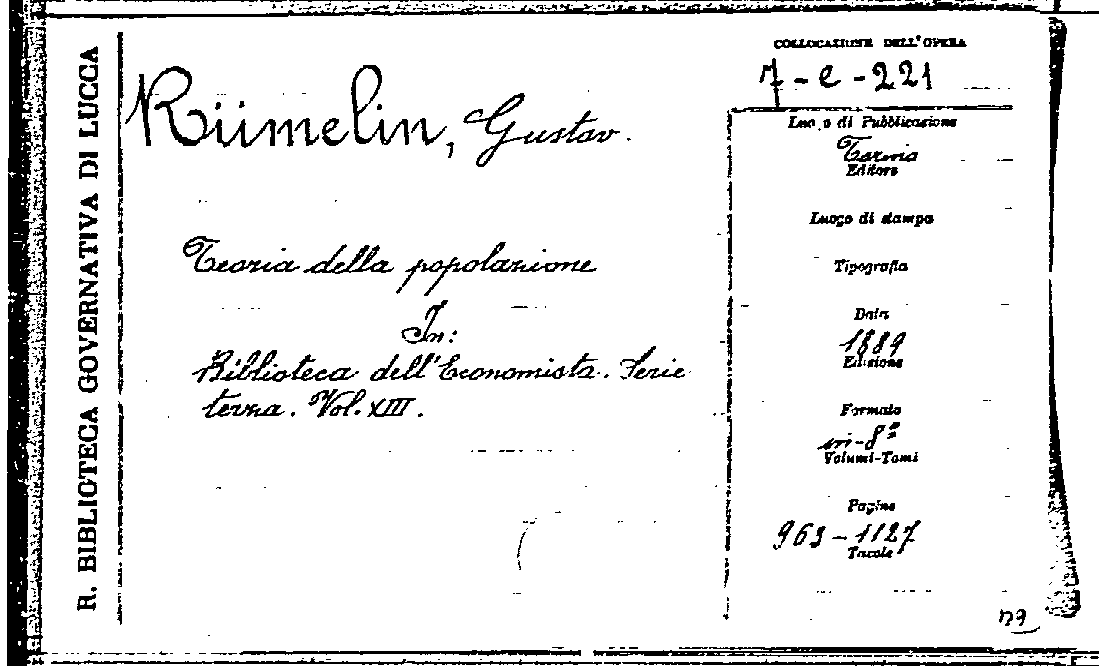 R. BIBLIOTECA GOVERNATIVA DI LUCCA
Rümelin, Gustav.
Teoria della popolazione
In:
Biblioteca dell'Economista. Serie
terza. Vol. XIII.
COLLOCAZIONE DELL'OPERA
7-e-221
Luogo di Pubblicazione
Torino
Editore
Luogo di stampa
Tipografia
Data
1889
Edizione
Formato
in-8º
Volumi-Tomi
Pagine
963-1127
Tavole